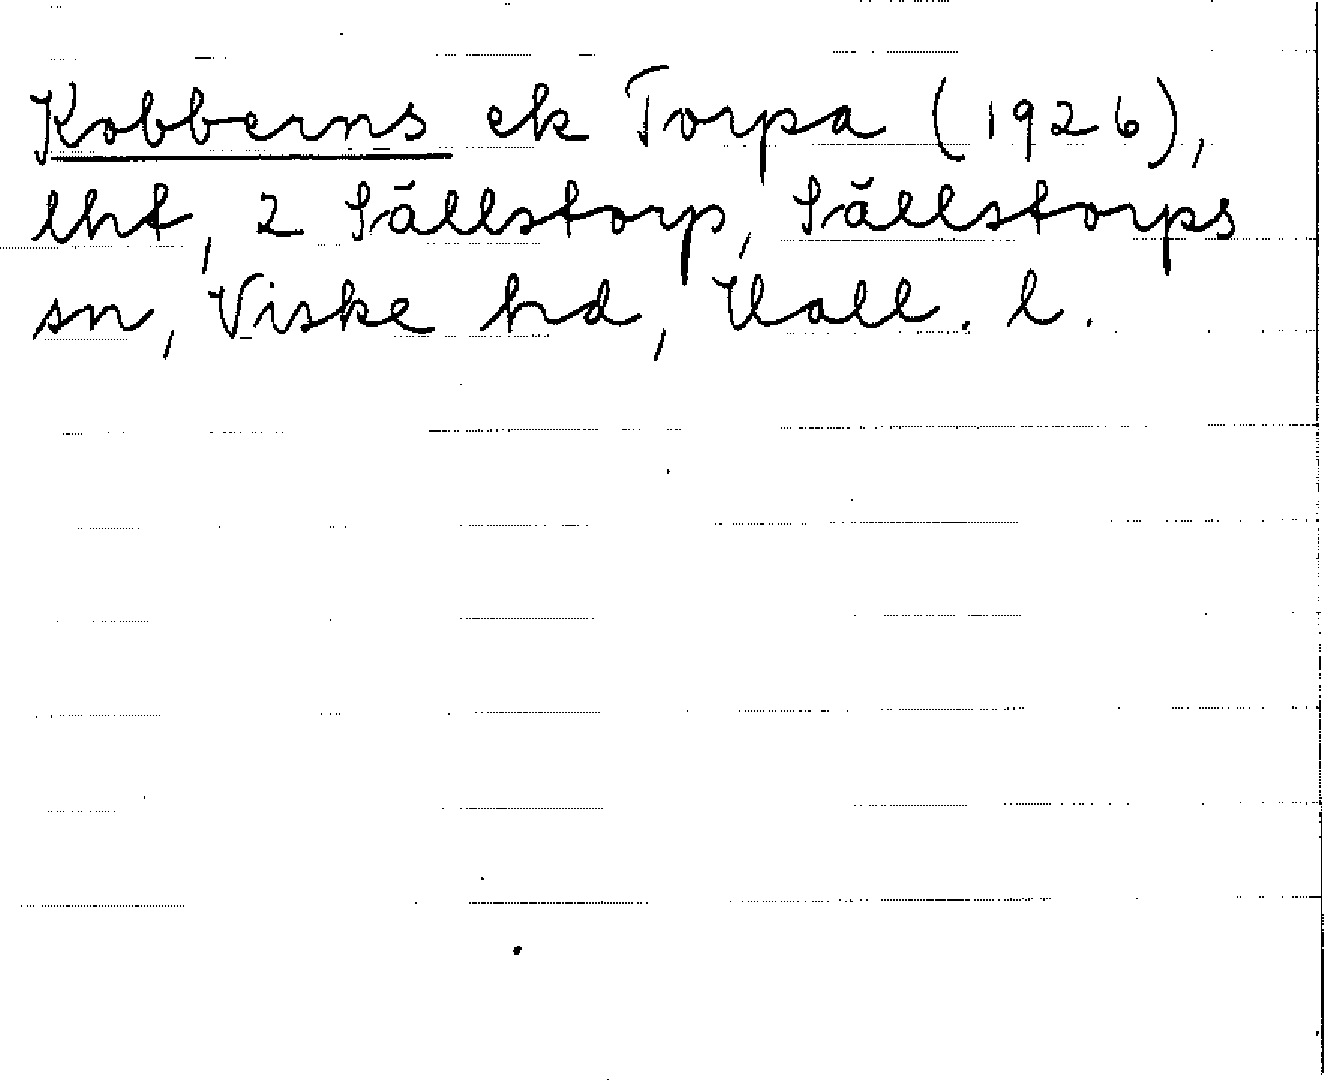 Kobberns ek Torpa (1926),
lht, 2 Sällstorp, Sällstorps
sn, Viske hd, Hall. l.